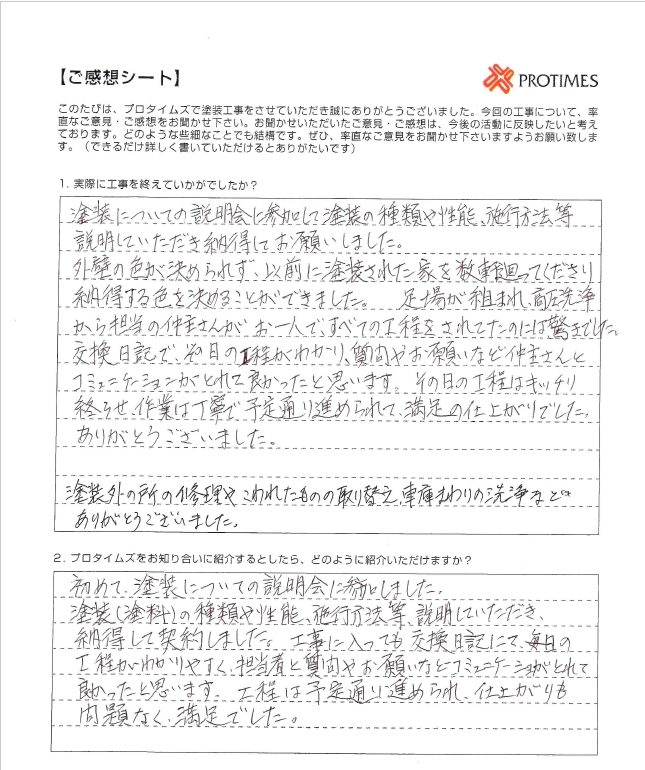 【ご感想シート】
PROTIMES
このたびは、プロタイムズで塗装工事をさせていただき誠にありがとうございました。今回の工事について、率
直なご意見・ご感想をお聞かせ下さい。お聞かせいただいたご意見・ご感想は、今後の活動に反映したいと考え
ております。どのような些細なことでも結構です。ぜひ、率直なご意見をお聞かせ下さいますようお願い致しま
す。（できるだけ詳しく書いていただけるとありがたいです）
1. 実際に工事を終えていかがでしたか？
塗装についての説明会に参加して塗装の種類や性能、施行方法等
説明していただき納得してお願いしました。
外壁の色が決められず、以前に塗装された家を数軒廻ってくださり
納得する色を決めることができました。 足場が組まれ、高圧洗浄
から担当の仲主さんがお一人で、すべての工程をされてたのには驚きでした。
交換日記で、その日の工程がわかり、質問やお願いなど仲主さんと
コミュニケーションがとれて良かったと思います。その日の工程はキッチリ
終らせ、作業は丁寧で予定通り進められて、満足の仕上がりでした。
ありがとうございました。
塗装外の所の修理やこわれたものの取り替え、車庫まわりの洗浄など
ありがとうございました。
2. プロタイムズをお知り合いに紹介するとしたら、どのように紹介いただけますか？
初めて、塗装についての説明会に参加しました。
塗装(塗料)の種類や性能、施行方法等、説明していただき、
納得して契約しました。工事に入っても交換日記にて、毎日の
工程がわかりやすく、担当者と質問やお願いなどコミュニケーションがとれて
良かったと思います。工程は予定通り進められ、仕上がりも
問題なく、満足でした。